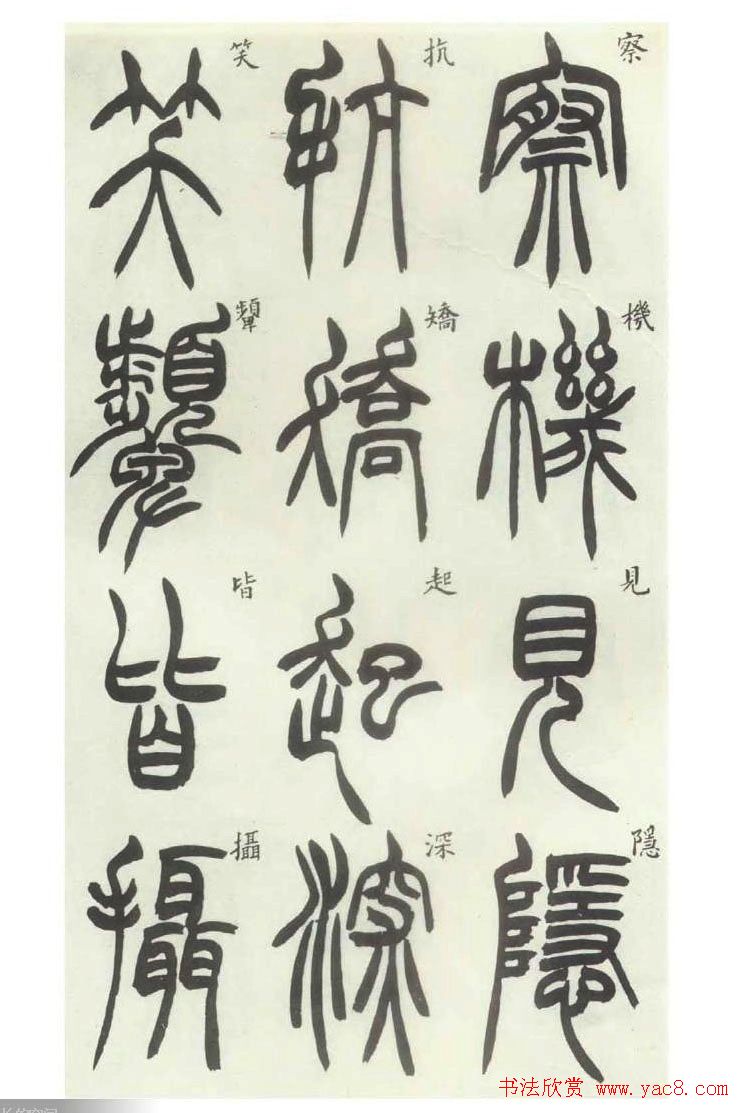 察機見隱
抗矯起深
笑顰皆攝
书法欣赏 www.yac8.com